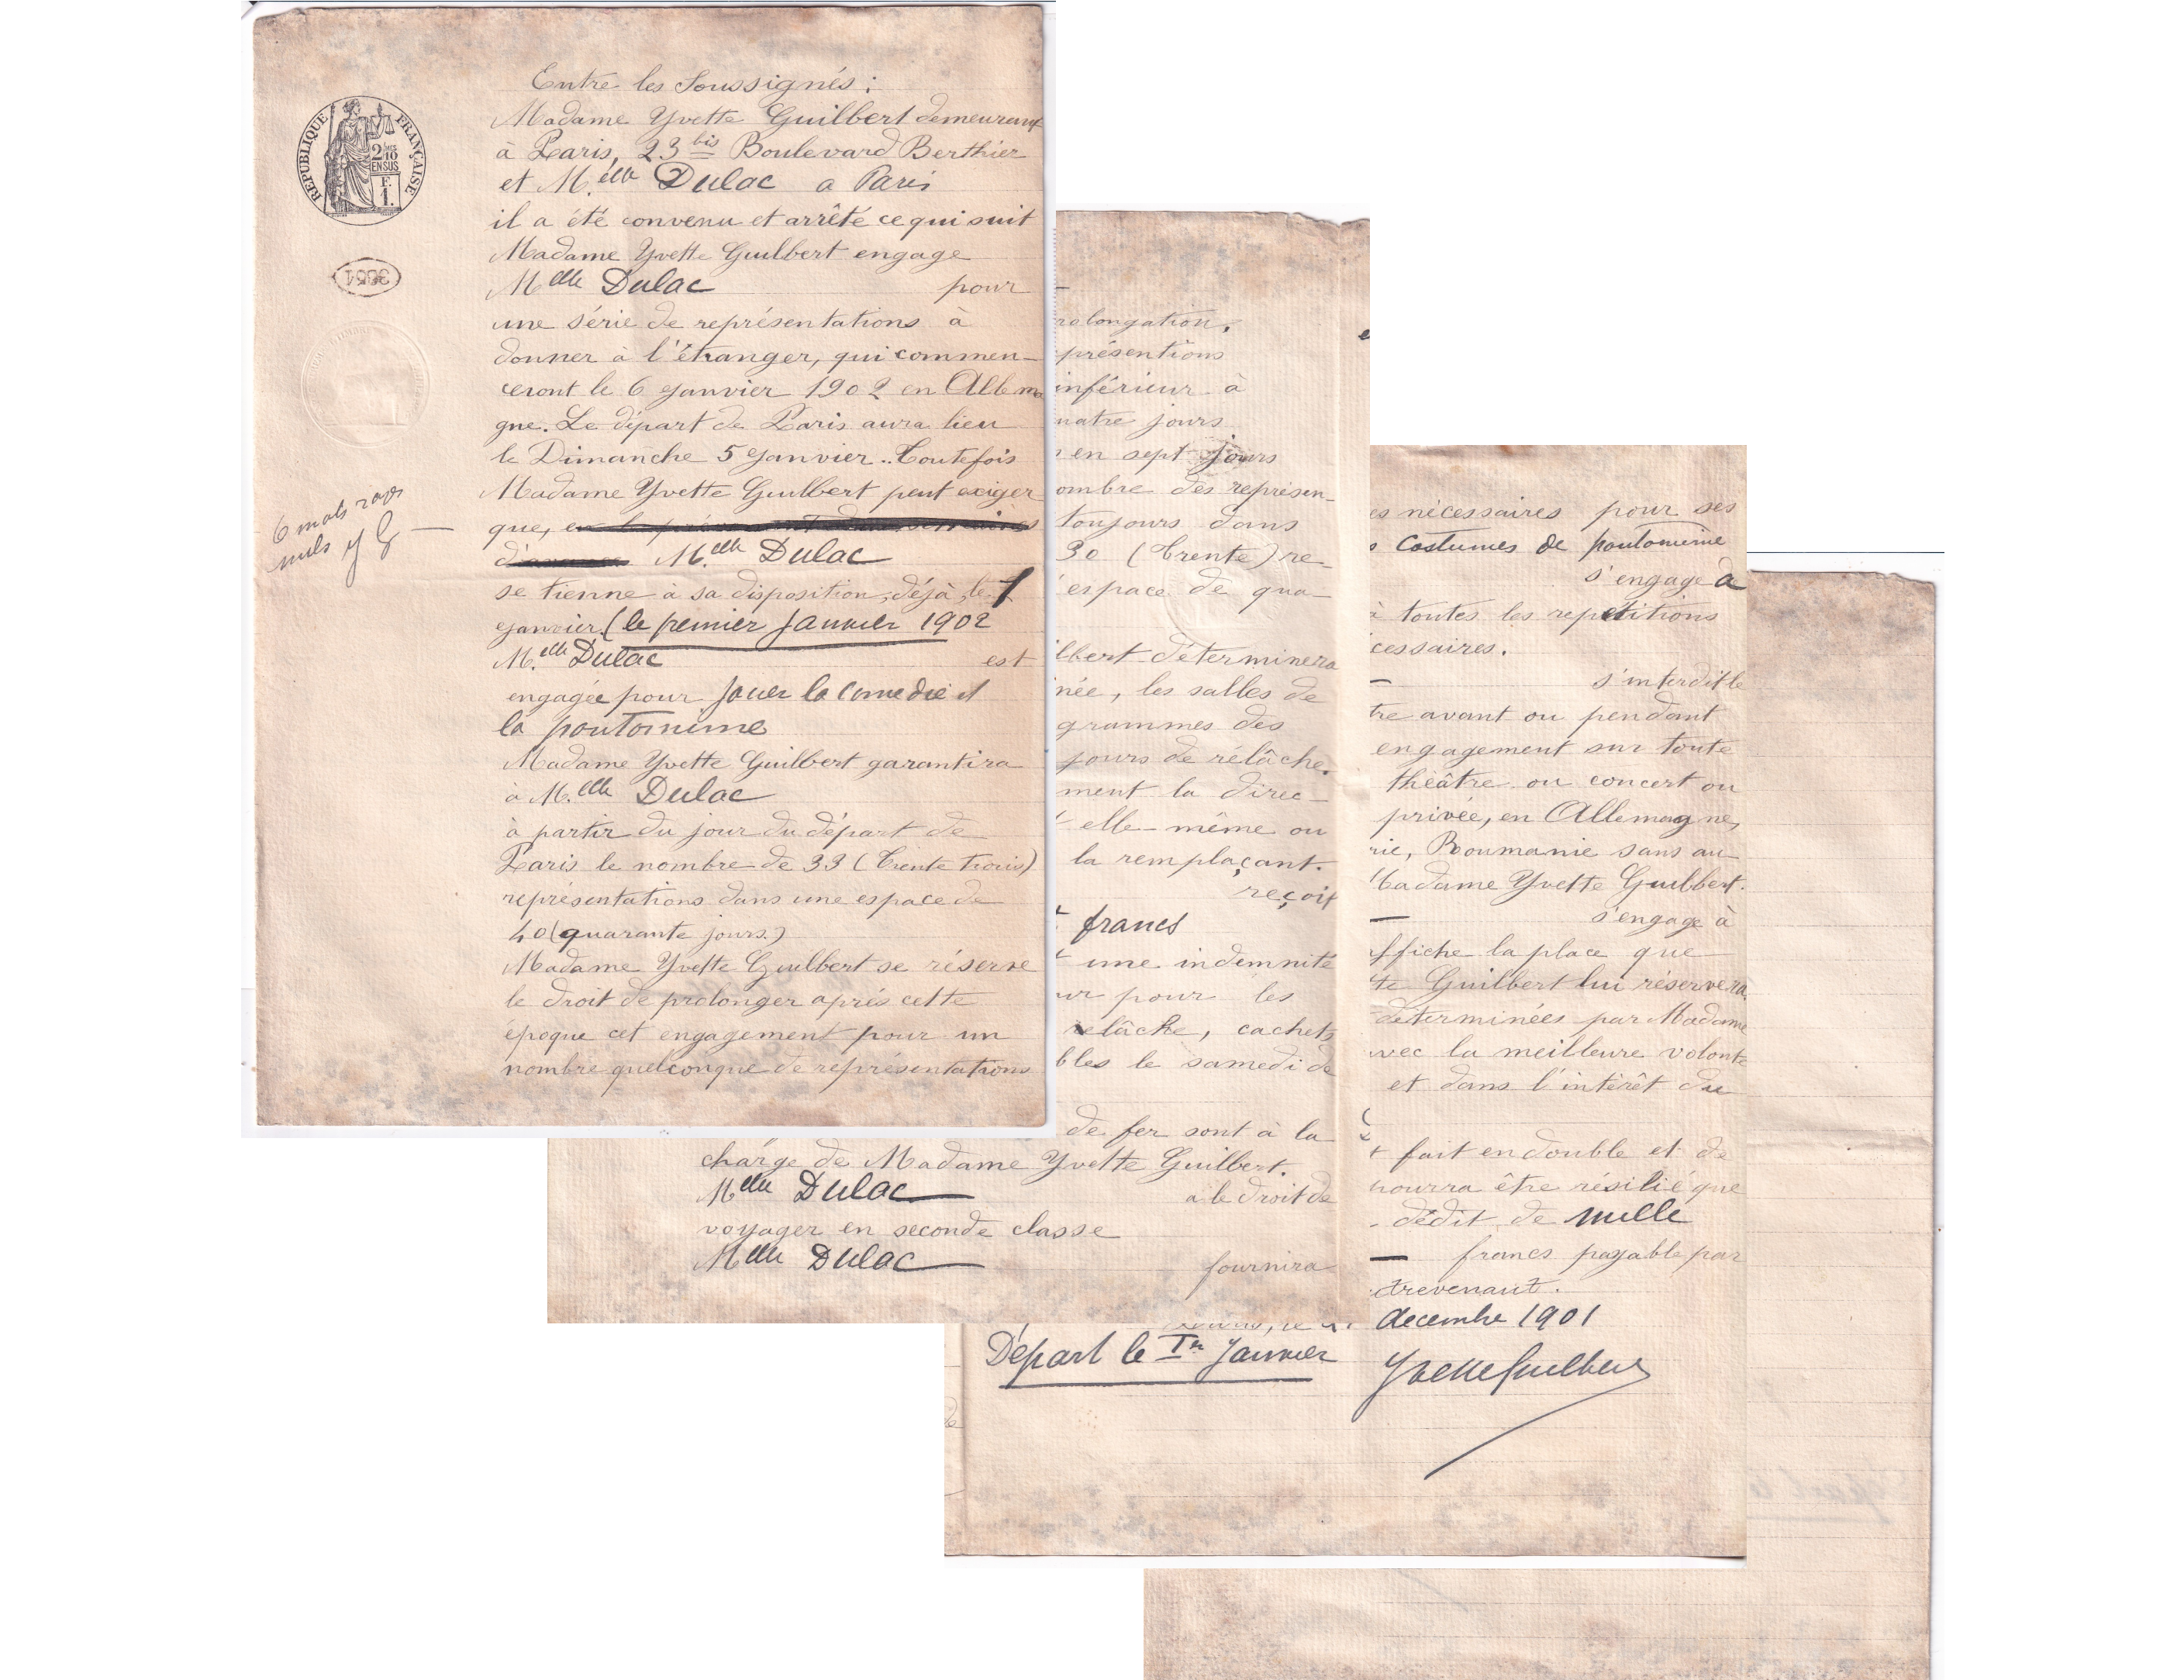 RÉPUBLIQUE FRANÇAISE
2/10 MES
EN SUS
F.
1.
3651
6 mots rayés
nuls YG
Entre les Soussignés :
Madame Yvette Guilbert demeurant
à Paris, 23 bis Boulevard Berthier
et M.elle Dulac a Paris
il a été convenu et arrêté ce qui suit
Madame Yvette Guilbert engage
Melle Dulac pour
une série de représentations à
donner à l'étranger, qui commen-
ceront le 6 Janvier 1902 en Allema
gne. Le départ de Paris aura lieu
le Dimanche 5 Janvier. Toutefois
Madame Yvette Guilbert peut exiger
que,
M.elle Dulac
se tienne à sa disposition, déjà, le 1
Janvier. (le premier Janvier 1902
M.elle Dulac est
engagée pour jouer la comedie et
la pantomime
Madame Yvette Guilbert garantira
a M.elle Dulac
à partir du jour du départ de
Paris le nombre de 33 (Trente trois)
représentations dans une espace de
40 (quarante jours.)
Madame Yvette Guilbert se réserve
le droit de prolonger après cette
époque cet engagement pour un
nombre quelconque de représentations
rolongation.
présentions
inférieur à
uatre jours
en sept jours
ombre des représen-
toujours dans
30 (Trente) re-
espace de qua-
lbert déterminera
née, les salles de
grammes des
jours de rélâche.
ment la direc-
elle-même ou
la remplaçant.
reçoit
francs
une indemnité
ur pour les
relâche, cachets
bles le samedi de
de fer sont à la
charge de Madame Yvette Guilbert.
Melle Dulac a le droit de
voyager en seconde classe
Melle Dulac fournira
es nécessaires pour ses
costumes de pantomime
s'engage à
à toutes les repetitions
cessaires.
s'interdit le
tre avant ou pendant
engagement sur toute
théâtre ou concert ou
privée, en Allemagne,
rie, Roumanie sans au
Madame Yvette Guilbert.
s'engage à
ffiche la place que
te Guilbert lui réservera
déterminées par Madame
avec la meilleure volonte
et dans l'intérêt du
t fait en double et de
pourra être résilié que
dédit de mille
francs payable par
trevenant.
decembre 1901
Départ le 1er Janvier
Yvette Guilbert